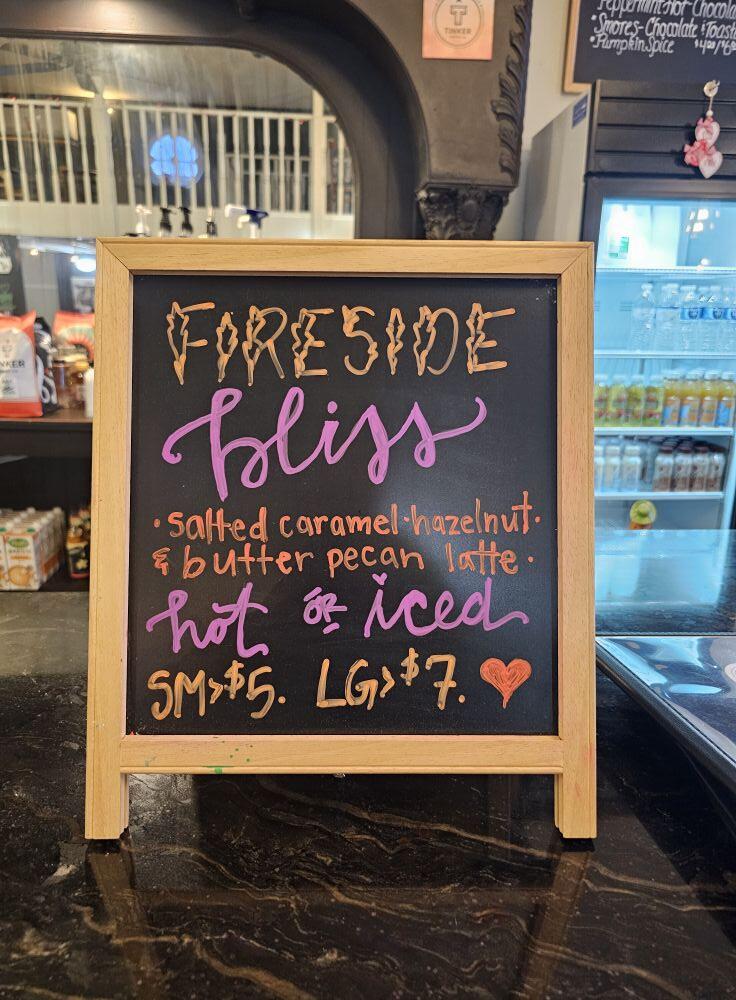 TINKER
Peppermint Hot Chocola
• Smores - Chocolate & Toaste
• Pumpkin Spice
FIRESIDE
bliss
• salted caramel • hazelnut •
& butter pecan latte •
hot or iced
SM > $5. LG > $7.